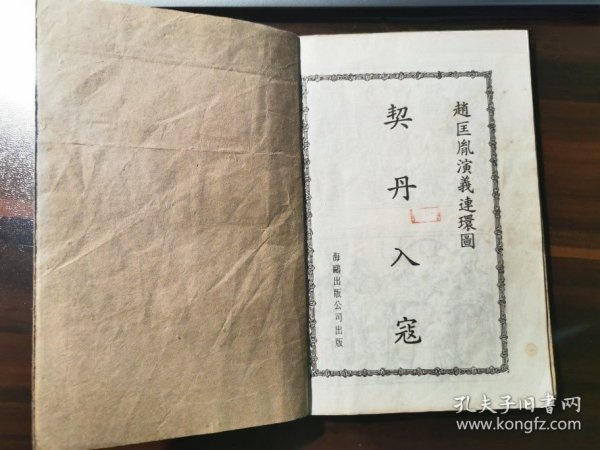 趙匡胤演義連環圖
契丹入寇
海鷗出版公司出版
孔夫子旧书网
www.kongfz.com